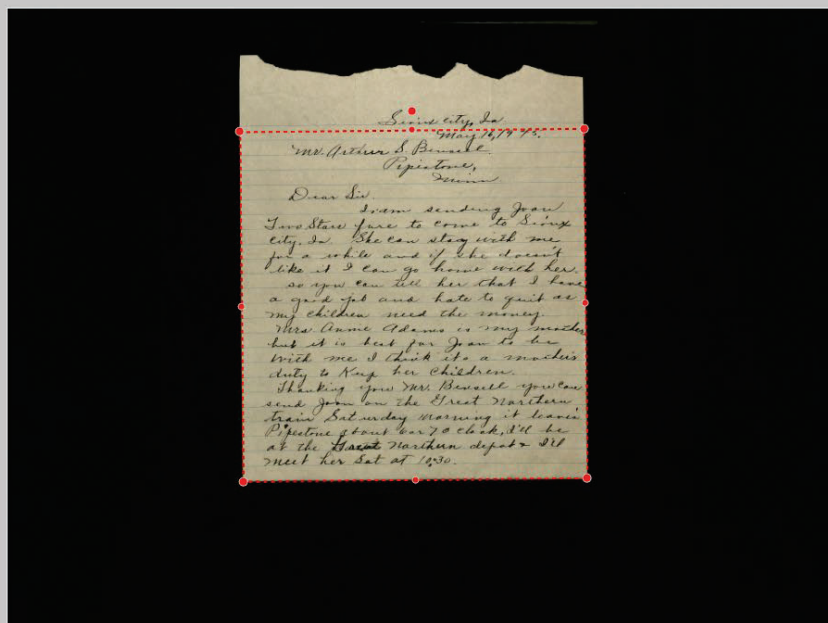 Sioux City, Ia
May 16, 19
Mr. Arthur S.
Pipestone,
Minn.
Dear Sir
I am sending Joan
Two Stars fare to come to Sioux
City, Ia She can stay with me
for a while and if she doesn't
like it I can go home with her.
so you can tell her that I have
a good job and hate to quit as
my children need the money.
Mrs. Annie Adams is my mother
but it is best for Joan to be
with me I think its a mother's
duty to Keep her Children.
Thanking you Mr. you can
send Joan on the Great Northern
train Saturday morning it leaves
Pipestone about 6 or 7 O Clock, I'll be
at the Great Northern depot & I'll
meet her Sat at 10:30.